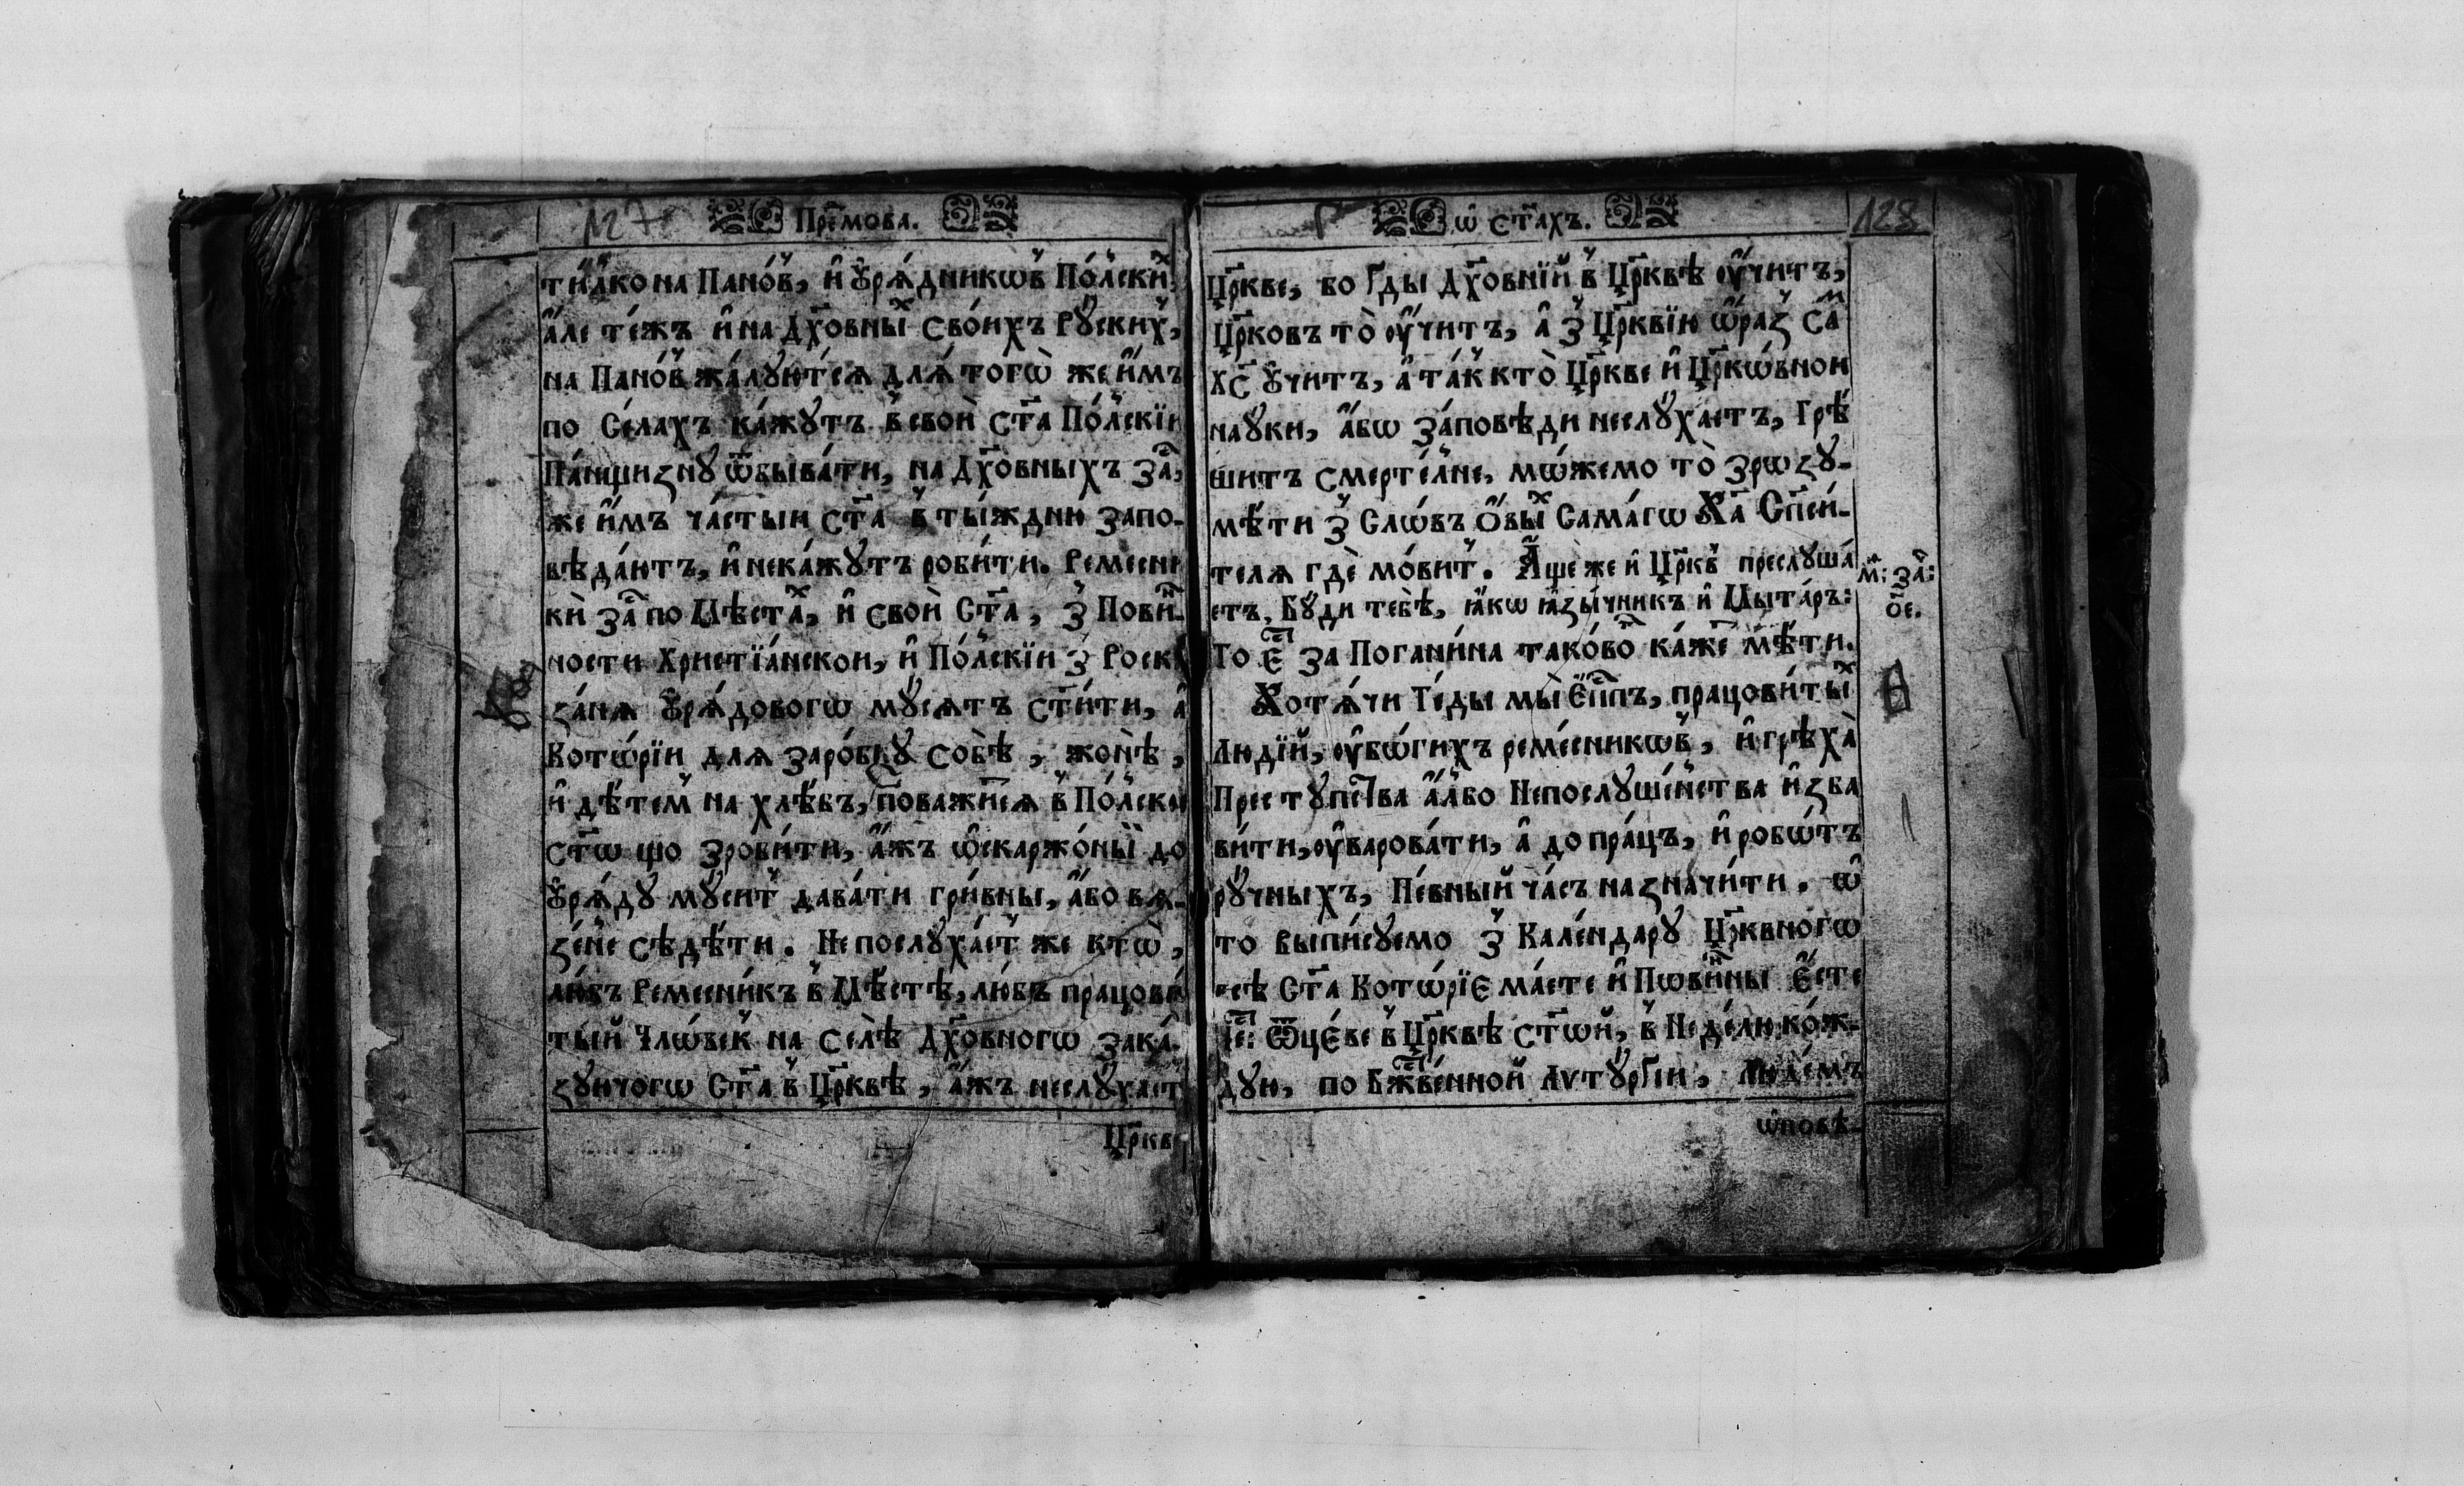 127
Прⷣемова.
ти́лко на Пано́въ, и҆ Ꙋ҆рѧ́дникѡвъ По́лскиⷯ,
а҆ле те́жъ и҆ на Дх҃овныⷯ Свои́хъ Рꙋ́скихъ,
на Пано́въ жа́лꙋютсѧ длѧ́ того̀ же и҆́мъ
по Се́лахъ ка́жꙋтъ в свои̑ Ст҃а По́лскїи
Па́нщизнꙋ ѿбыва́ти, на Дх҃овныхъ за̑,
же и҆́мъ ча́стыи Ст҃а в ты́ждню запо-
вѣда́ютъ, и҆ нека́жꙋтъ роби́ти. Ремесни
кѝ за̑ по Мѣстаⷯ, и҆ свои̑ Ст҃а, з Повиⷩ-
ности Христїа́нскои, и҆ По́лскїи з Роска
за́нѧ Ꙋ҆рѧ́довогѡ мꙋ́сѧтъ ст҃и́ти, а҆
Кото́рїи длѧ заро́бкꙋ Собѣ̀, жо́нѣ,
и҆ дѣ́темъ на хлѣ́бъ, поважи́тсѧ в По́лское
Ст҃ѡ що зроби́ти, а҆́жъ ѡ҆скаржо́ный до
Ꙋ҆рѧ́дꙋ мꙋ́ситъ дава́ти гри́вны, а҆́бо в вѧ-
зе́не сѣдѣ́ти. Непослꙋ́хаетъ же кто̀,
лю́бъ Ремесни́къ в Мѣ́стѣ, лю́бъ працови́
тый Чловѣ́къ на Селѣ̀ Дх҃овногѡ зака́-
зꙋючогѡ Ст҃а в Цр҃квѣ, а҆́жъ неслꙋ́хаетъ
Цр҃кве
ѡ҆ ст҃ахъ.
128
Цр҃кве, бо Ґды Дх҃овнїй в Цр҃квѣ оу҆́читъ,
Цр҃ковъ то̀ оу҆́читъ, а҆ з Цр҃квїю ѡ҆́разъ Саⷨ
Хс҃ Ꙋ҆́читъ, а҆ та́к кто̀ Цр҃кве и҆ Цр҃ко́вной
наꙋ́ки, а҆́бѡ за́повѣди неслꙋ́хаетъ, Грѣ́
шитъ Смерте́лне, мо́жемо то̀ зрозꙋ-
мѣ́ти з Сло́въ Ѻ҆́выⷯ Сама́гѡ Ха҃ Сп҃си́-
телѧ гдѐ мо́витъ. А҆́ще же и҆ Цр҃квъ преслꙋша́
етъ, Бꙋ́ди тебѣ̀, ꙗ҆́кѡ ꙗ҆зы́чникъ и҆ Мыта́ръ:
То Є҆ст за Погани́на тако́воⷢ ка́же мѣ́ти.
Хотѧ́чи Те́ды мы̀ Е҆пⷭ҇пъ, працови́тыⷯ
Людїй, оу҆бо́гихъ реме́сникѡвъ, и҆ грѣха̀
Престꙋ́пства а҆́лбо Непослꙋше́нства и҆зба
ви́ти, оу҆варова́ти, а҆ до пра́цъ, и҆ робо́тъ
рꙋ́чныхъ, Пе́вный ча́съ назначи́ти. ѡ҆
то выпи́сꙋемо з Кале́ндарꙋ Цр҃квногѡ
всѣ̀ Ст҃а Кото́рїе ма́ете и҆ Пови́нны Є҆́сте
Ѿце́ве в Цр҃квѣ ст҃ой, в Недѣ́лю ко́ж-
дꙋю, по Бжⷭ҇тве́нной Литꙋргїи, Лю́демъ
ѡ҆повѣ-
мⷴ: за̑:
о҃е.